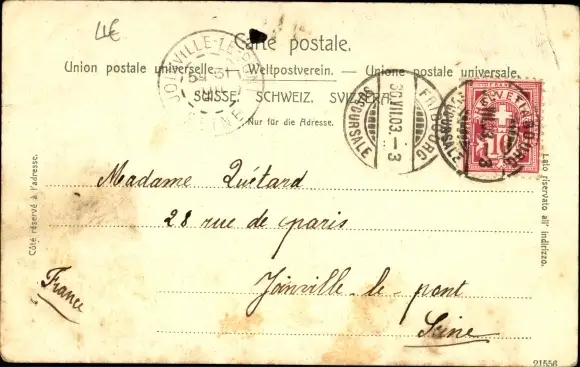 4€
Carte postale.
Union postale universelle. — Weltpostverein. — Unione postale universale.
SUISSE. SCHWEIZ. SVIZZERA.
Nur für die Adresse.
JOINVILLE-LE-PONT
SEINE
FRIBOURG
30.VII.03.–3
SUCCURSALE
HELVETIA
10
Côté réservé à l'adresse.
Lato riservato all' indirizzo.
Madame Quétard
28 rue de paris
Joinville-le-pont
Seine
France
21556